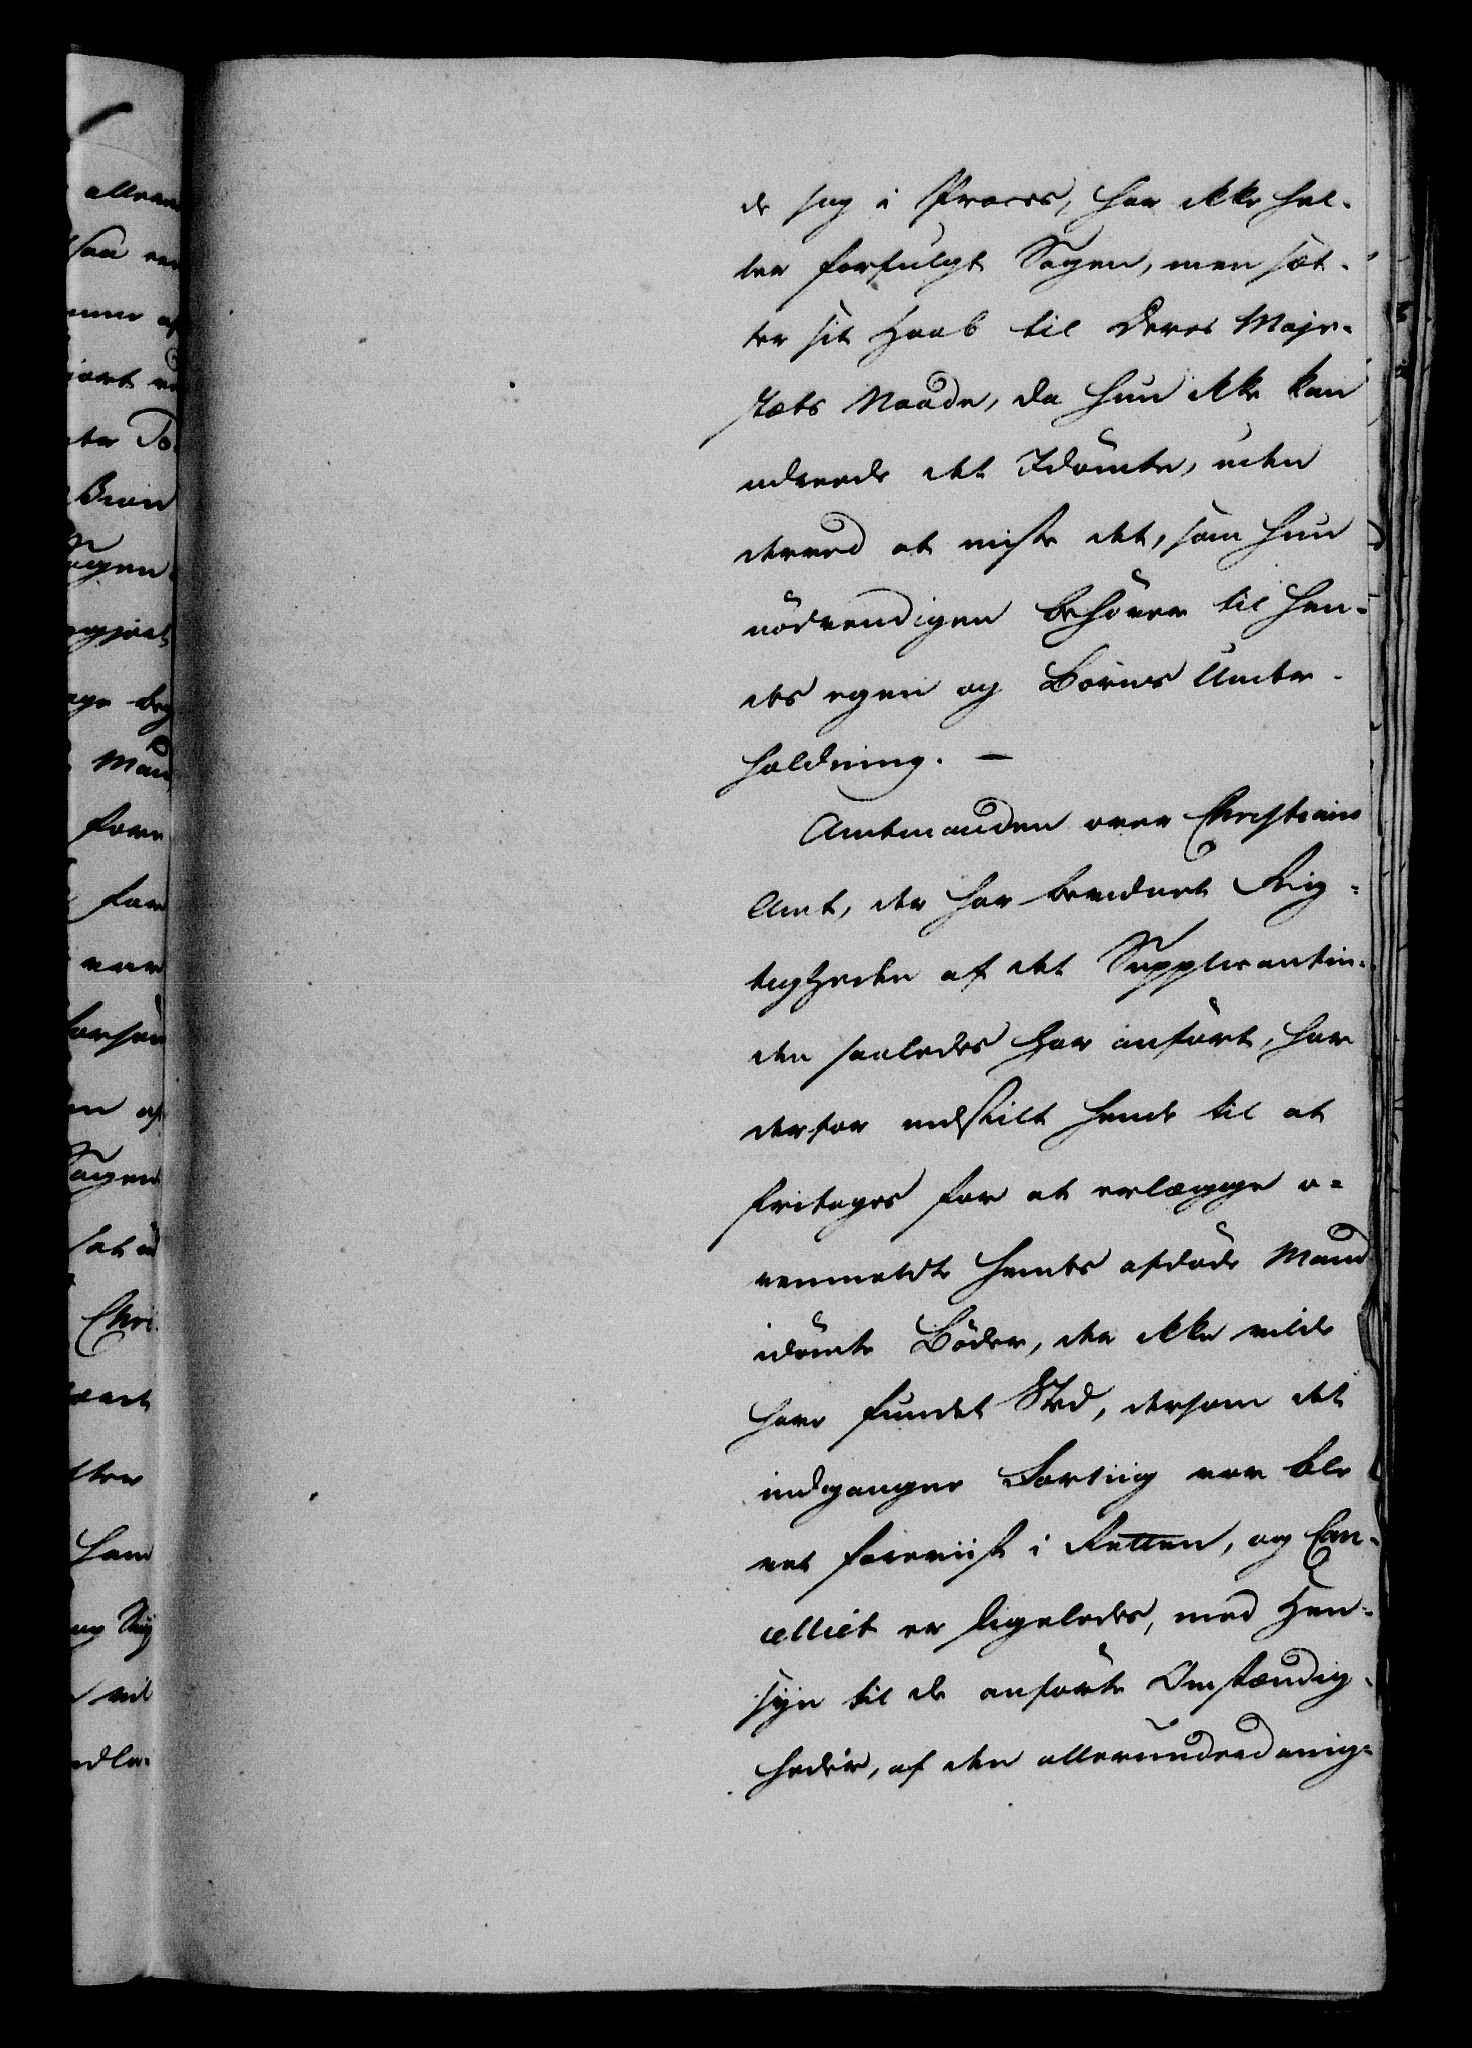 de sag i Proces, har ikke hel-
ler forfulgt Sagen, men sæt-
ter sit Haab til Deres Maje-
stæts Naade, da hun ikke kan
udreede det Idömte, uden
derved at miste det, som hun
nödvendigen behöver til hen-
des egen og Börns Under-
holdning. —
Amtmanden over Christians
Amt, der har bevidnet Rig-
tigheden af det Supplicantin-
den saaledes har anfört, har
derfor indstilt hende til at
fritages for at erlægge o-
venmeldte hendes afdöde Mand
idömte Böder, der ikke vilde
have fundet Sted, dersom det
indgangne Forliig var ble
vet foreviist i Retten, og Can-
celliet er ligeledes, med Hen-
syn til de anförte Omstændig-
heder, af den allerunderdanig-